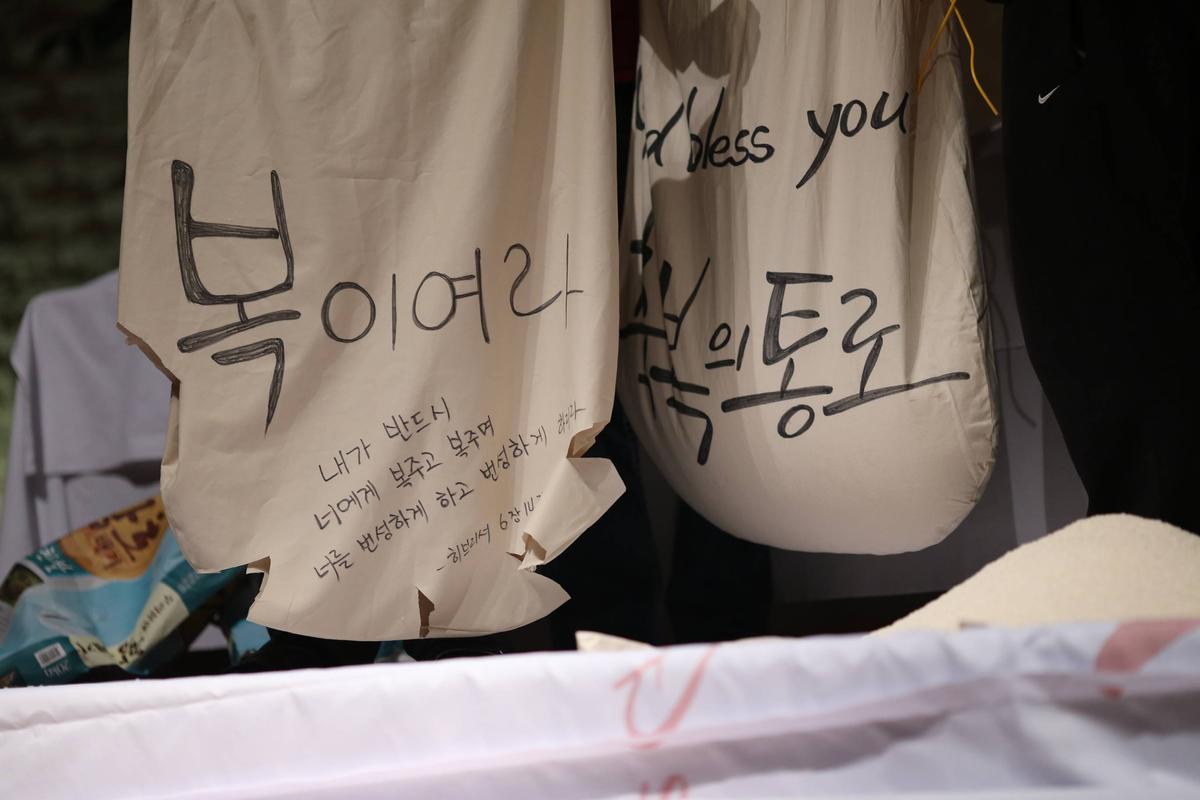 복이여라
내가 반드시
너에게 복주고 복주며
너를 번성하게 하고 번성하게 하리라
- 히브리서 6장 14
God bless you
축복의 통로